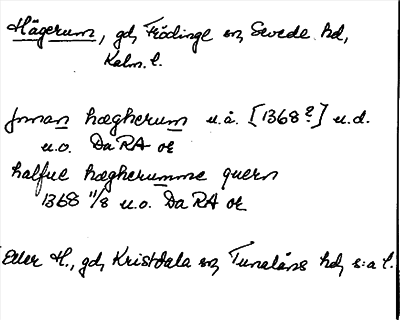 Hägerum, gd, Frödinge sn, Sevede hd,
Kalm. l.
jnnan hægherum u.å. [1368?] u.d.
u.o. DaRA or
halfue hægherumme quern
1368 11/8 u.o. DaRA or
Eller H., gd, Kristdala sn, Tunaläns hd, s:a l.